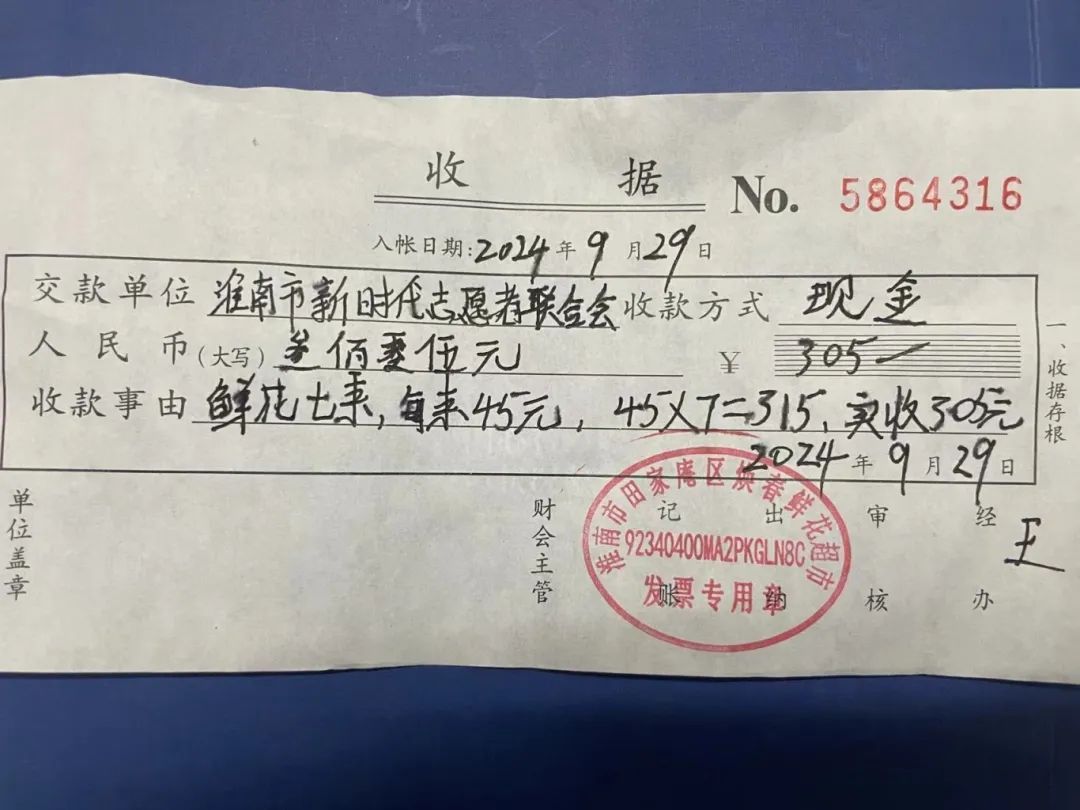 收 据 No. 5864316
入帐日期:2024年9月29日
交款单位 淮南市新时代志愿者联合会 收款方式 现金
人民币(大写) 叁佰零伍元 ¥ 305
收款事由 鲜花七束,每束45元,45X7=315,实收305元
2024年9月29日
单位盖章 财会主管 记账 出纳 审核 经办 王
一、收据存根
淮南市田家庵区焕春鲜花超市
92340400MA2PKGLN8C
发票专用章